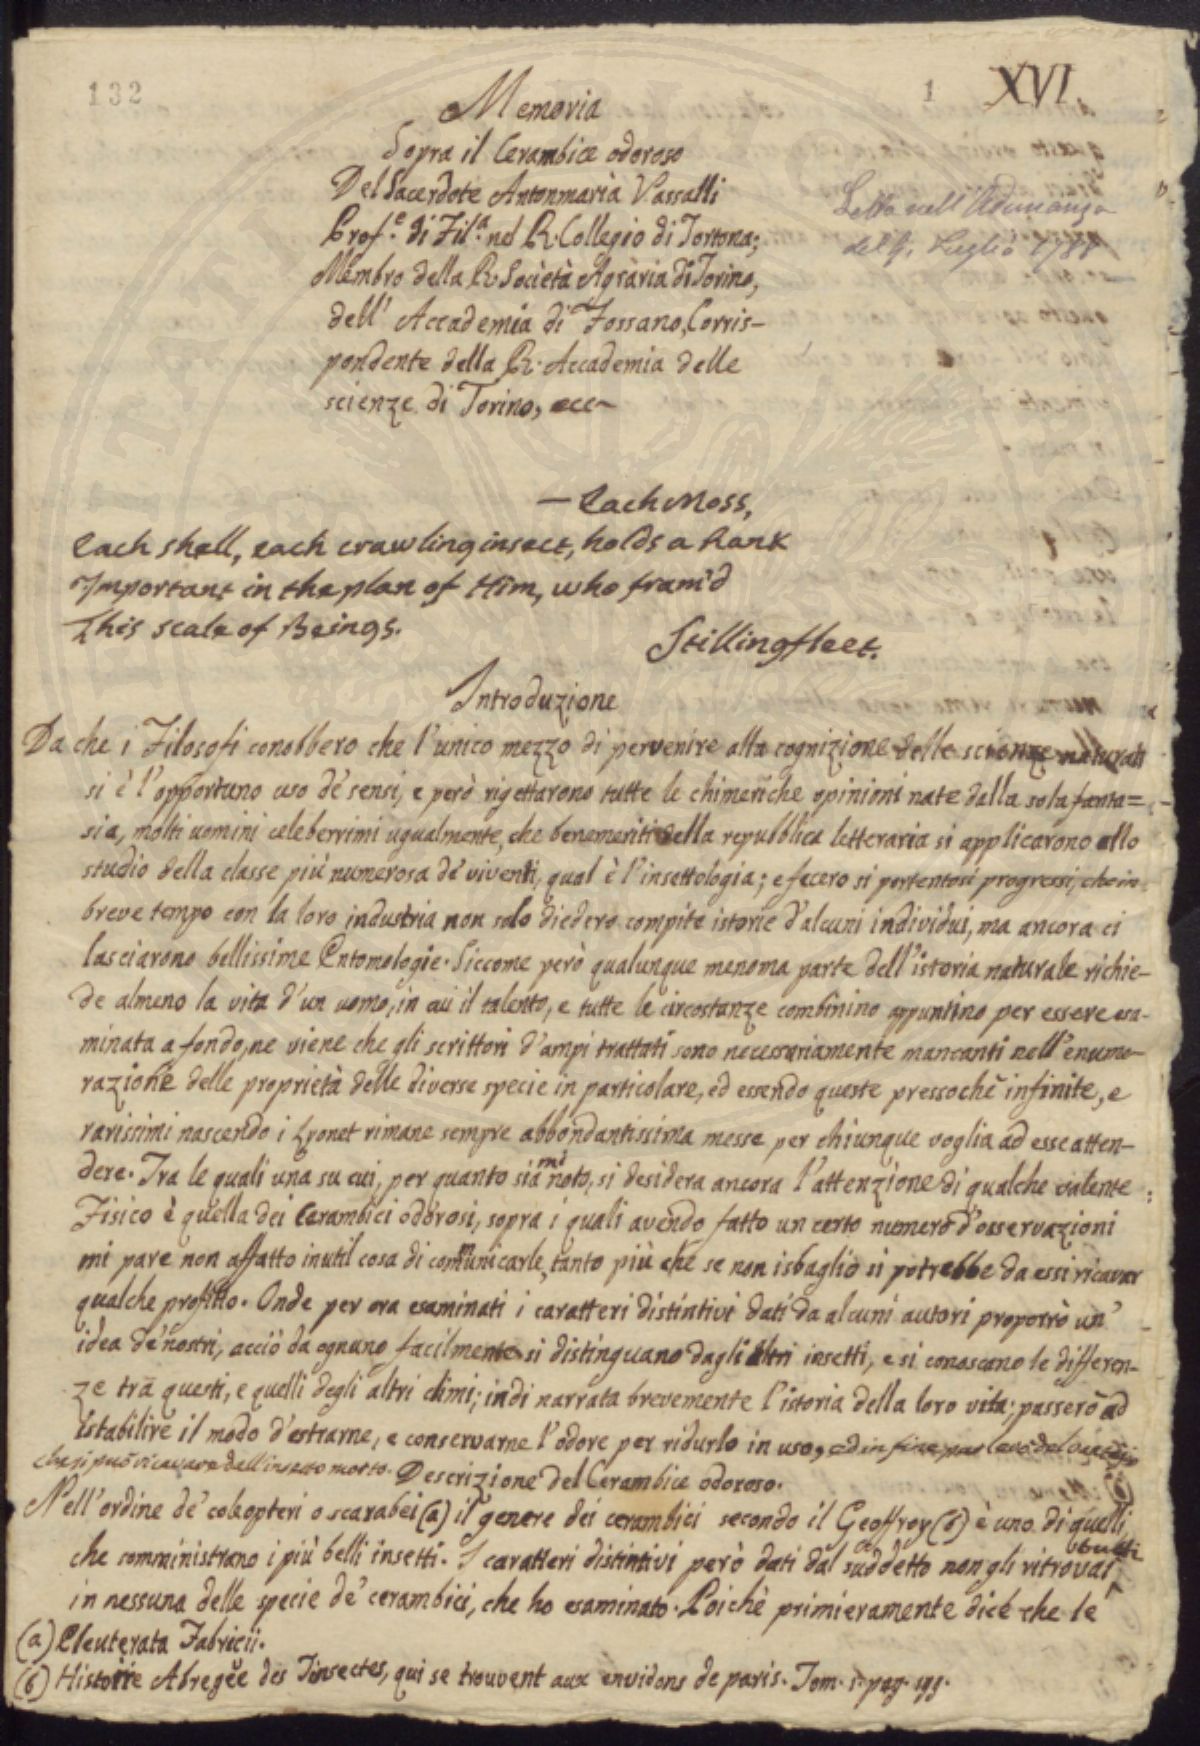 132
1 XVI.
Memoria
Sopra il Cerambice odoroso
Del Sacerdote Antonmaria Vassalli
Prof.e di Fil.a nel R. Collegio di Tortona;
Membro della R. Società Agraria di Torino,
dell' Accademia di Fossano, Corris-
pondente della R. Accademia delle
scienze di Torino, ecc
Letta nell' Adunanza
del Luglio 1788
— Each Moss,
Each shell, each crawling insect, holds a Rank
Important in the plan of Him, who fram'd
This scale of Beings.
Stillingfleet.
Introduzione
Da che i Filosofi conobbero che l'unico mezzo di pervenire alla cognizione delle scienze naturali
si è l'opportuno uso de' sensi, e però rigettarono tutte le chimeriche opinioni nate dalla sola fanta=
sia, molti uomini celeberrimi ugualmente, che benemeriti della repubblica letteraria si applicarono allo
studio della classe più numerosa de' viventi, qual è l'insettologia; e fecero si portentosi progressi, che in
breve tempo con la loro industria non solo diedero compite istorie d'alcuni individui, ma ancora ci
lasciarono bellissime Entomologie. Siccome però qualunque menoma parte dell'istoria naturale richie-
de almeno la vita d'un uomo, in cui il talento, e tutte le circostanze combinino appuntino per essere esa-
minata a fondo, ne viene che gli scrittori d'ampi trattati sono necessariamente mancanti nell'enume-
razione delle proprietà delle diverse specie in particolare, ed essendo queste pressochè infinite, e
rarissimi nascendo i Lyonet rimane sempre abbondantissima messe per chiunque voglia ad esse atten-
dere. Tra le quali una su cui, per quanto sia mi noto, si desidera ancora l'attenzione di qualche valente
Fisico è quella dei Cerambici odorosi, sopra i quali avendo fatto un certo numero d'osservazioni
mi pare non affatto inutil cosa di communicarle, tanto più che se non isbaglio si potrebbe da essi ricavar
qualche profitto. Onde per ora esaminati i caratteri distintivi dati da alcuni autori proporrò un'
idea de' nostri, acciò da ognuno facilmente si distinguano dagli altri insetti, e si conoscano le differen-
ze tra questi, e quelli degli altri climi; indi narrata brevemente l'istoria della loro vita; passerò ad
istabilire il modo d'estrarne, e conservarne l'odore per ridurlo in uso, ed in fine parlerò del
che si può ricavare dall'insetto morto.
Descrizione del Cerambice odoroso.
Nell'ordine de' coleopteri o scarabei (a) il genere dei cerambici secondo il Geoffroy (b) è uno di quelli
che somministrano i più belli insetti. I caratteri distintivi però dati dal suddetto non gli ritrovai tutti
in nessuna delle specie de' cerambici, che ho esaminato. Poichè primieramente dice che le
(a) Eleuterata Fabricii.
(b) Histoire Abregée des Insectes, qui se trouvent aux environs de paris. Tom. 1. pag.